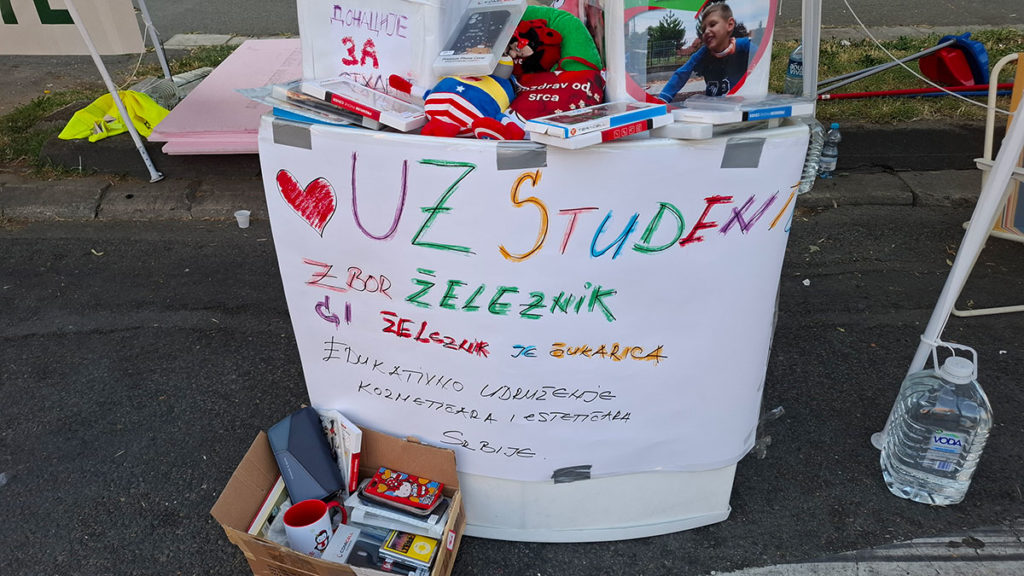 ДОНАЦИЈЕ
ЗА
Pozdrav od
srca
UZ STUDENT
ZBOR ŽELEZNIK
ŽELEZNIK JE ČUKARICA
EDUKATIVNO UDRUŽENJE
KOZMETIČARA I ESTETIČARA
SRBIJE.
VODA